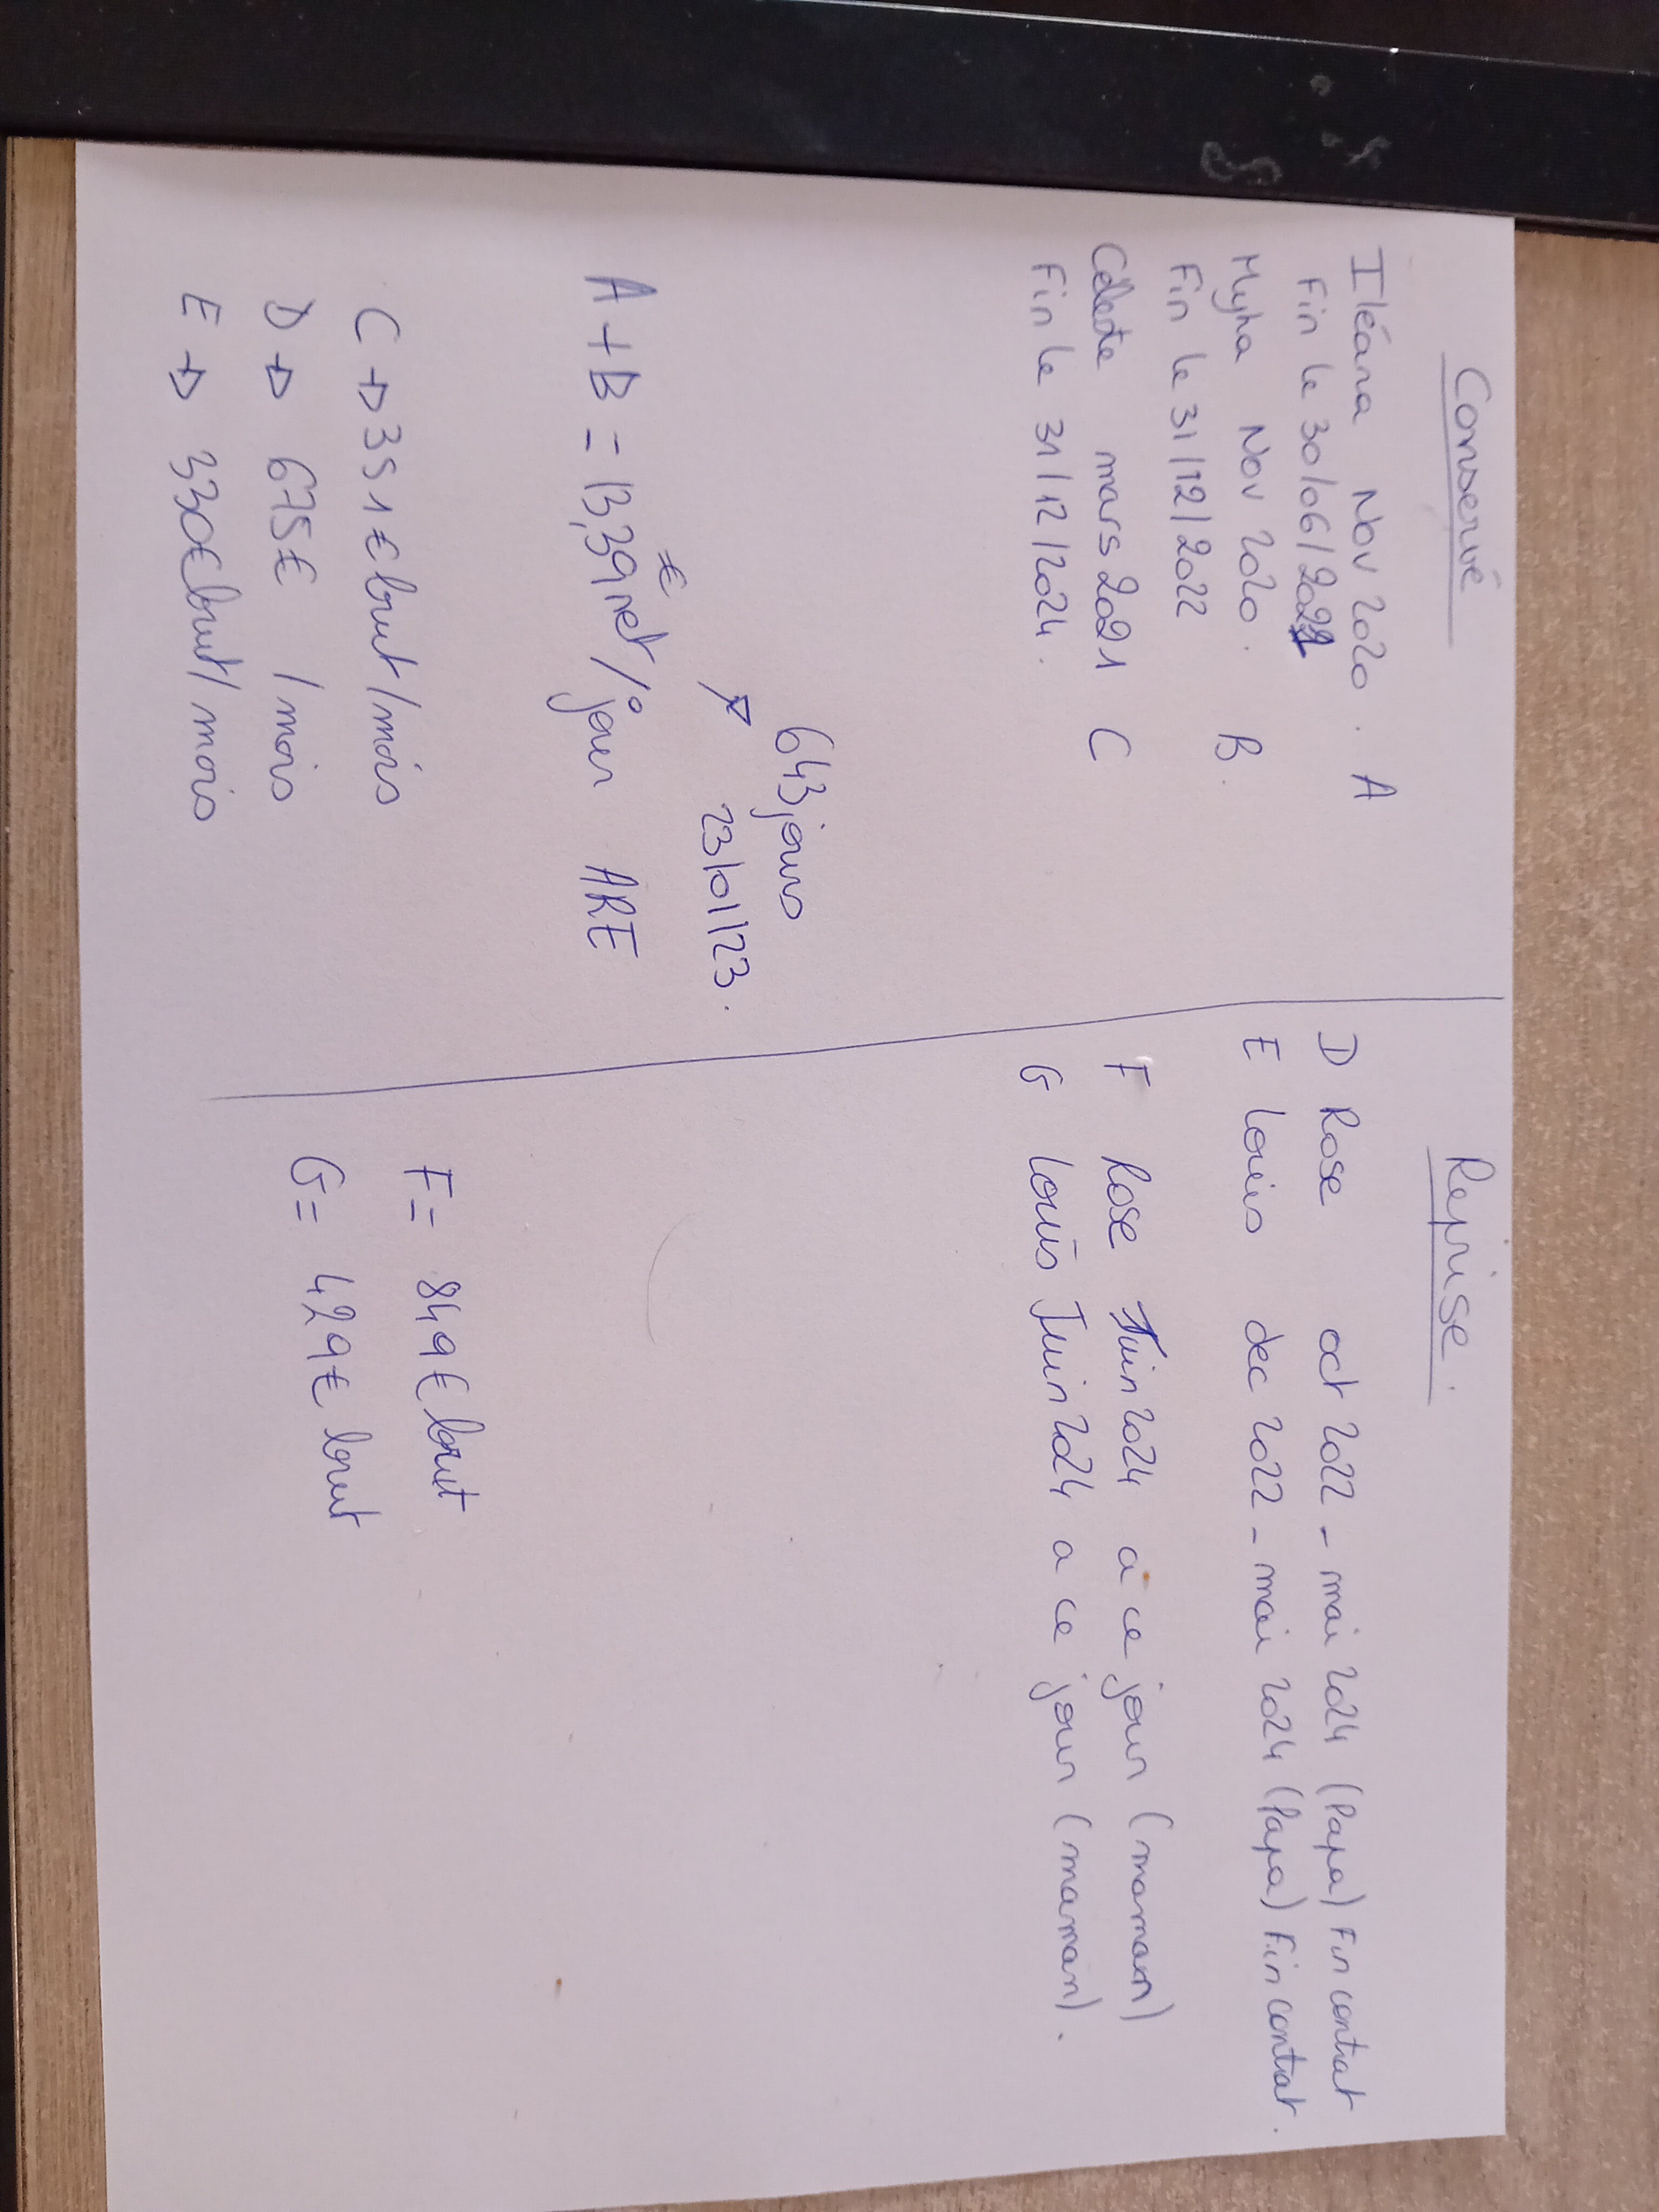 Conservé
Iléana Nov 2020. A
Fin le 30/06/2021
Myha Nov 2020. B.
Fin le 31/12/2022
Céleste mars 2021 C
Fin le 31/12/2024.
643 jours
→ 23/01/23.
A + B = 13,39 € net/jour ARE
C → 351 € brut/mois
D → 675 € /mois
E → 330 € brut/mois
Reprise.
D Rose oct 2022 - mai 2024 (Papa) Fin contrat
E Louis dec 2022 - mai 2024 (Papa) Fin contrat.
F Rose Juin 2024 a ce jour (maman)
G Louis Juin 2024 a ce jour (maman).
F = 849 € brut
G = 429 € brut